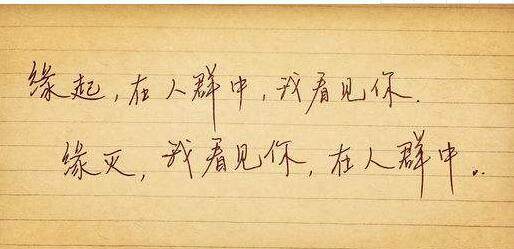 缘起,在人群中,我看见你.
缘灭,我看见你,在人群中..